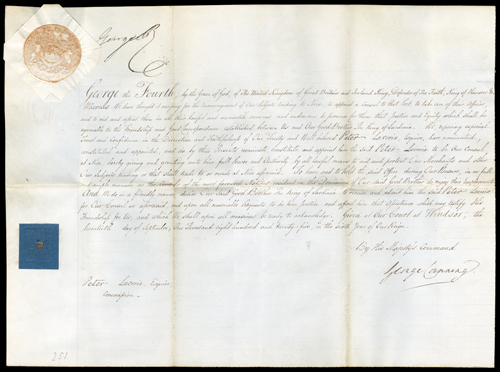 George R
George the Fourth, by the Grace of God, of The United Kingdom of Great Britain and Ireland King, Defender of The Faith, King of Hanover &c
Whereas We have thought it necessary for the Encouragement of Our Subjects trading to Nice, to appoint a Consul to that Port to take care of their affairs,
and to aid and assist them in all their lawful and mercantile concerns and to them that Justice and Equity which shall be
agreeable to the Friendship and good Correspondence established between Us and Our Good Brother The King of Sardinia. We, reposing especial
Trust and Confidence in the Discretion and Faithfulness of Our Trusty and Well beloved Peter Lacroix, Esquire, have nominated,
constituted and appointed, and do by these Presents nominate, constitute and appoint him the said Peter Lacroix to be Our Consul
at Nice, hereby giving and granting unto him full Power and Authority by all lawful means to aid and protect Our Merchants and other
Our Subjects trading or that shall trade to or reside at Nice aforesaid. To have and to hold the said Office during Our Pleasure, in as full
& ample manner as the Consul of the most favored Nation
And We do in a friendly manner The King of Sardinia to receive and admit him the said Peter Lacroix
for Our Consul as aforesaid, and upon all reasonable Requests to do him Justice and afford him this Assistance which may testify His
Friendship for Us, and which We shall upon all occasions be ready to acknowledge. Given at Our Court at Windsor, the
day of September, One thousand eight hundred and twenty five, in the Sixth Year of Our Reign.
By His Majesty's Command
George Canning
Peter Lacroix Esquire
Commission
251